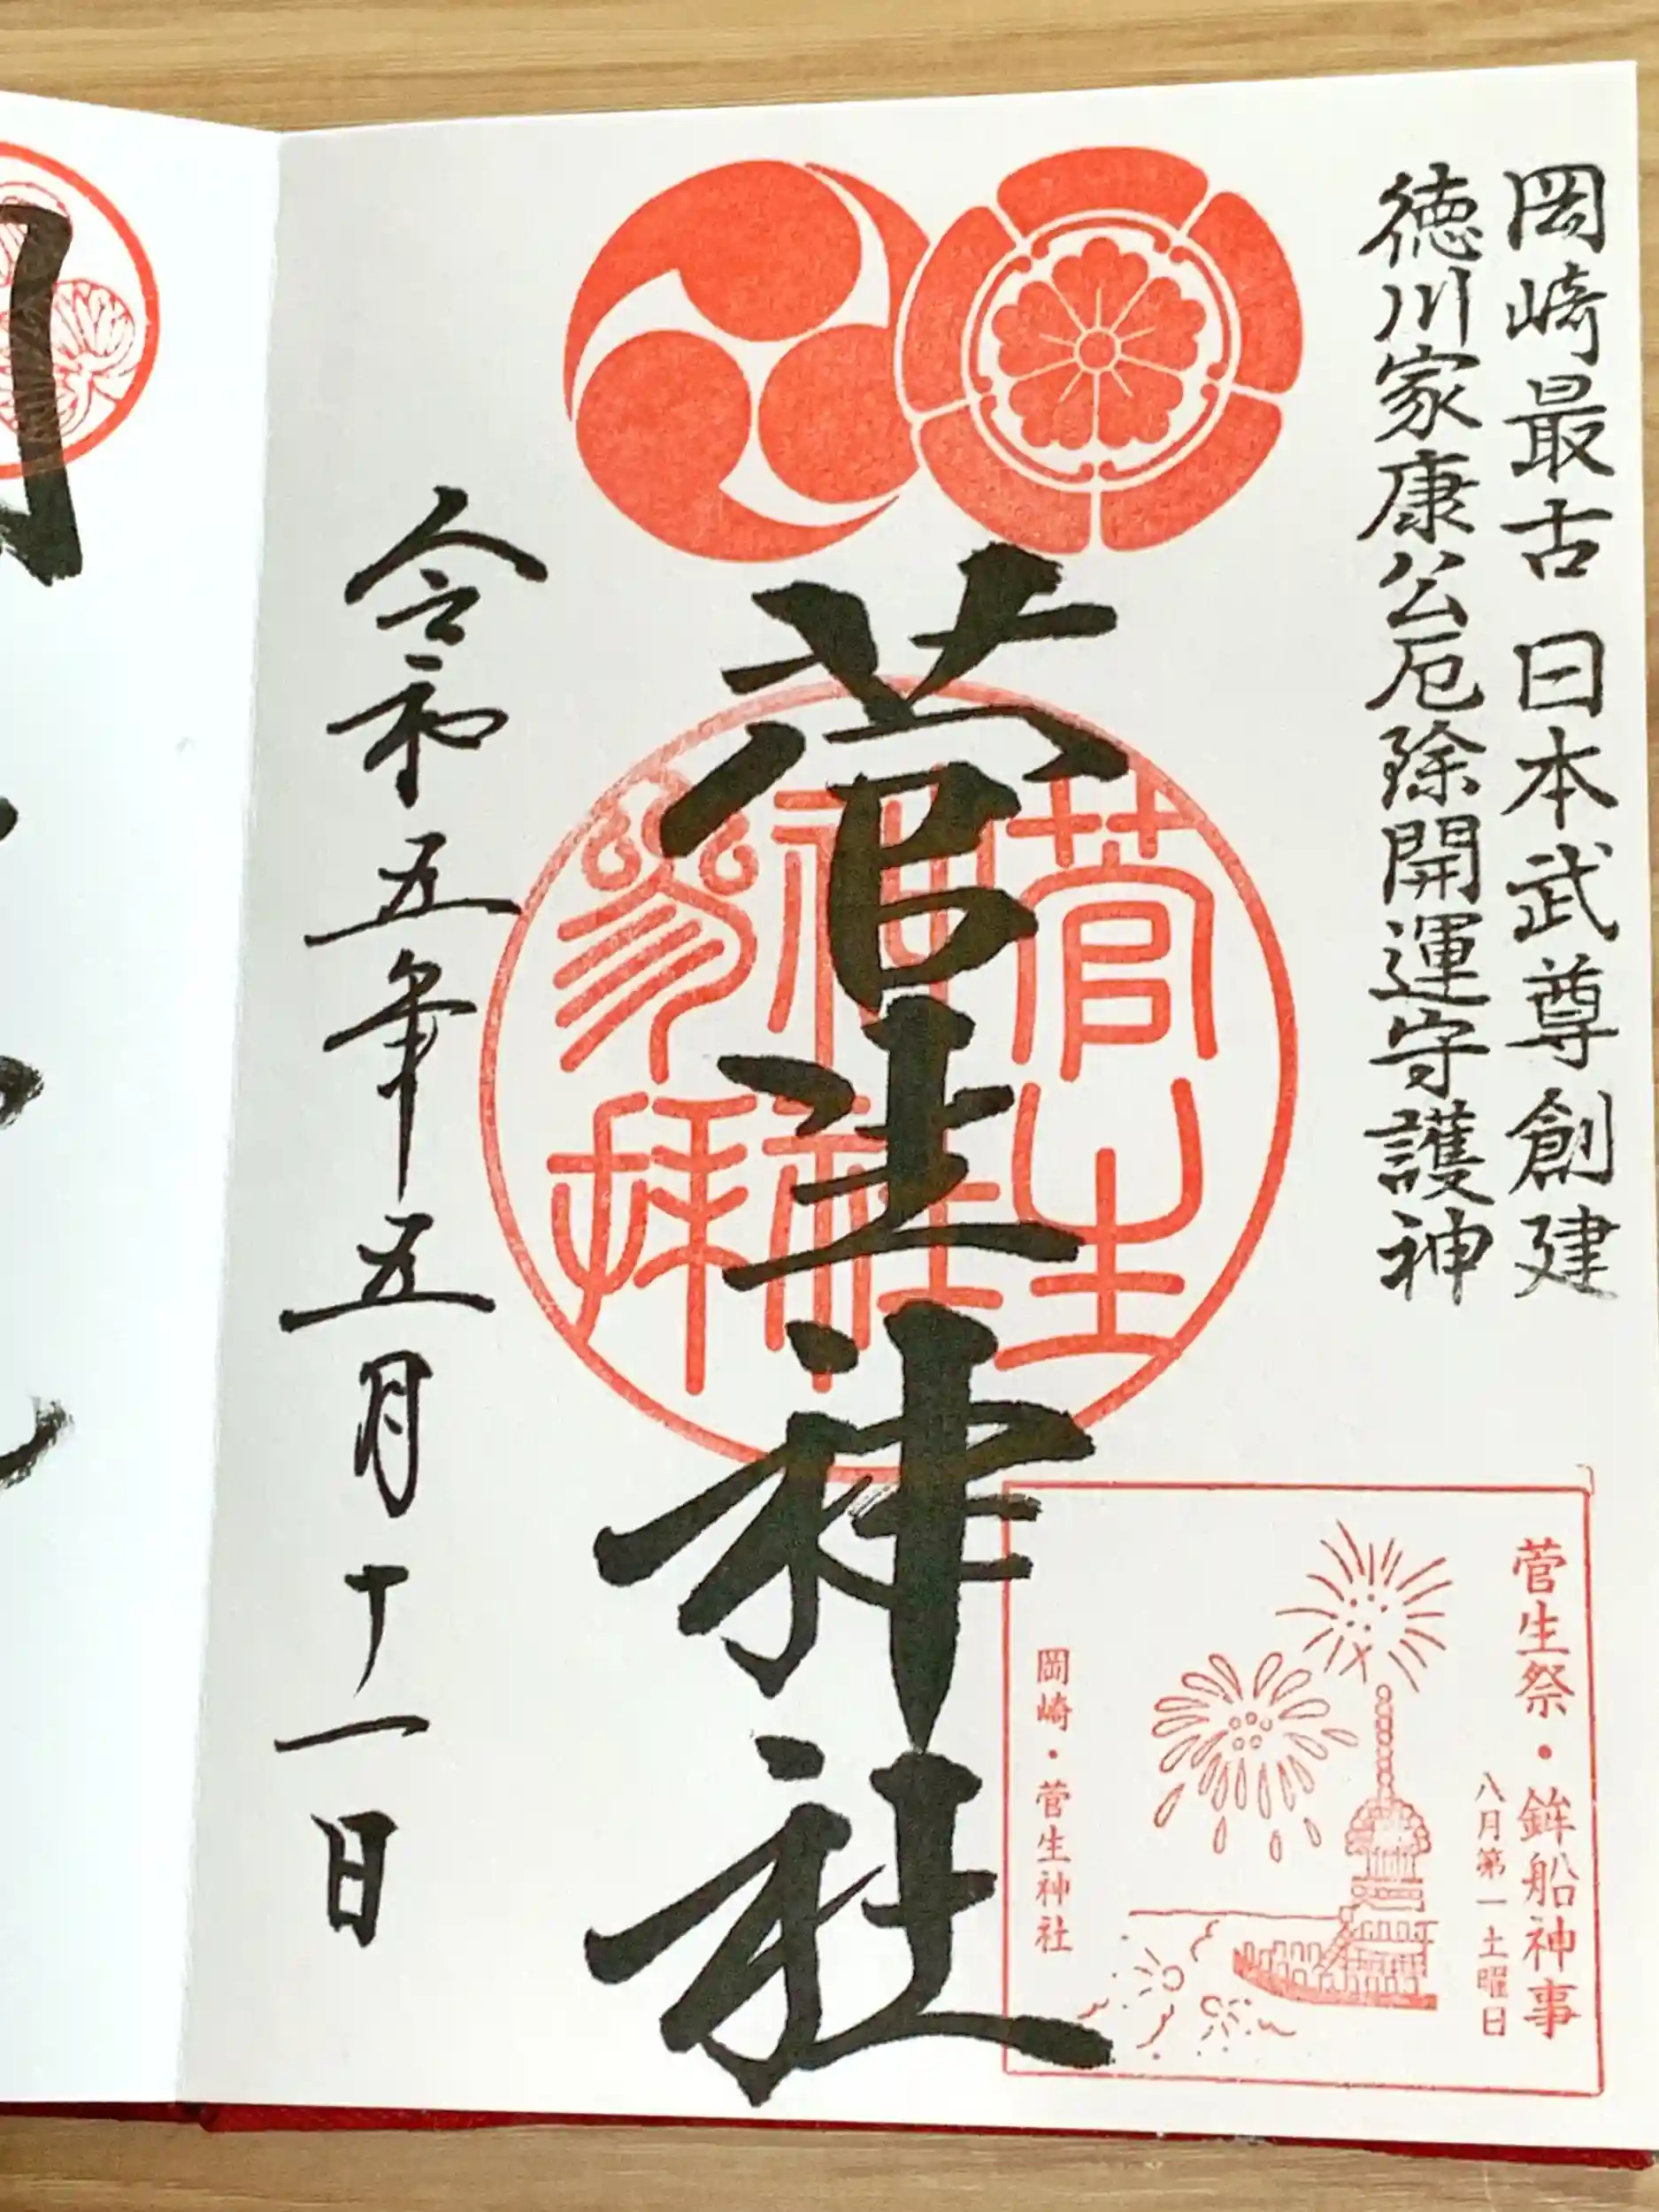 岡崎最古 日本武尊創建
徳川家康公厄除開運守護神
菅生神社
菅生
神社
参拝
令和五年五月十一日
菅生祭・鉾船神事
八月第一土曜日
岡崎・菅生神社